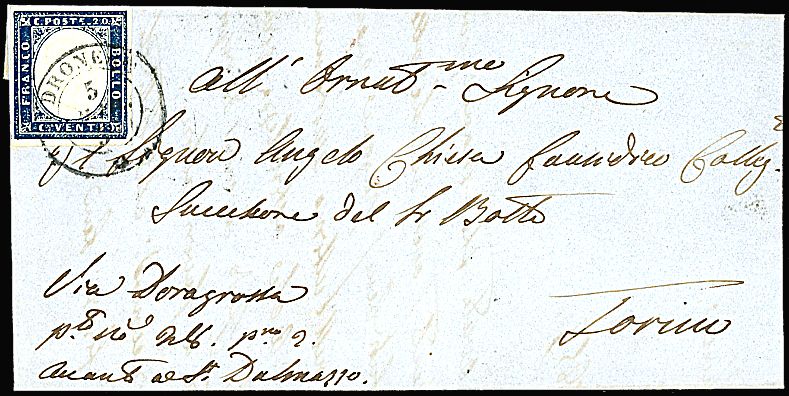 C. POSTE. 20.
FRANCO
BOLLO
C. VENTI
DRONERO
5
All' Ornat.me Signore
Il Signor Angelo Chiesa Causidico Colleg.
Successore del Sr Botto
Via Doragrossa
pta no 26. pno 2.
avanti a St. Dalmazzo.
Torino